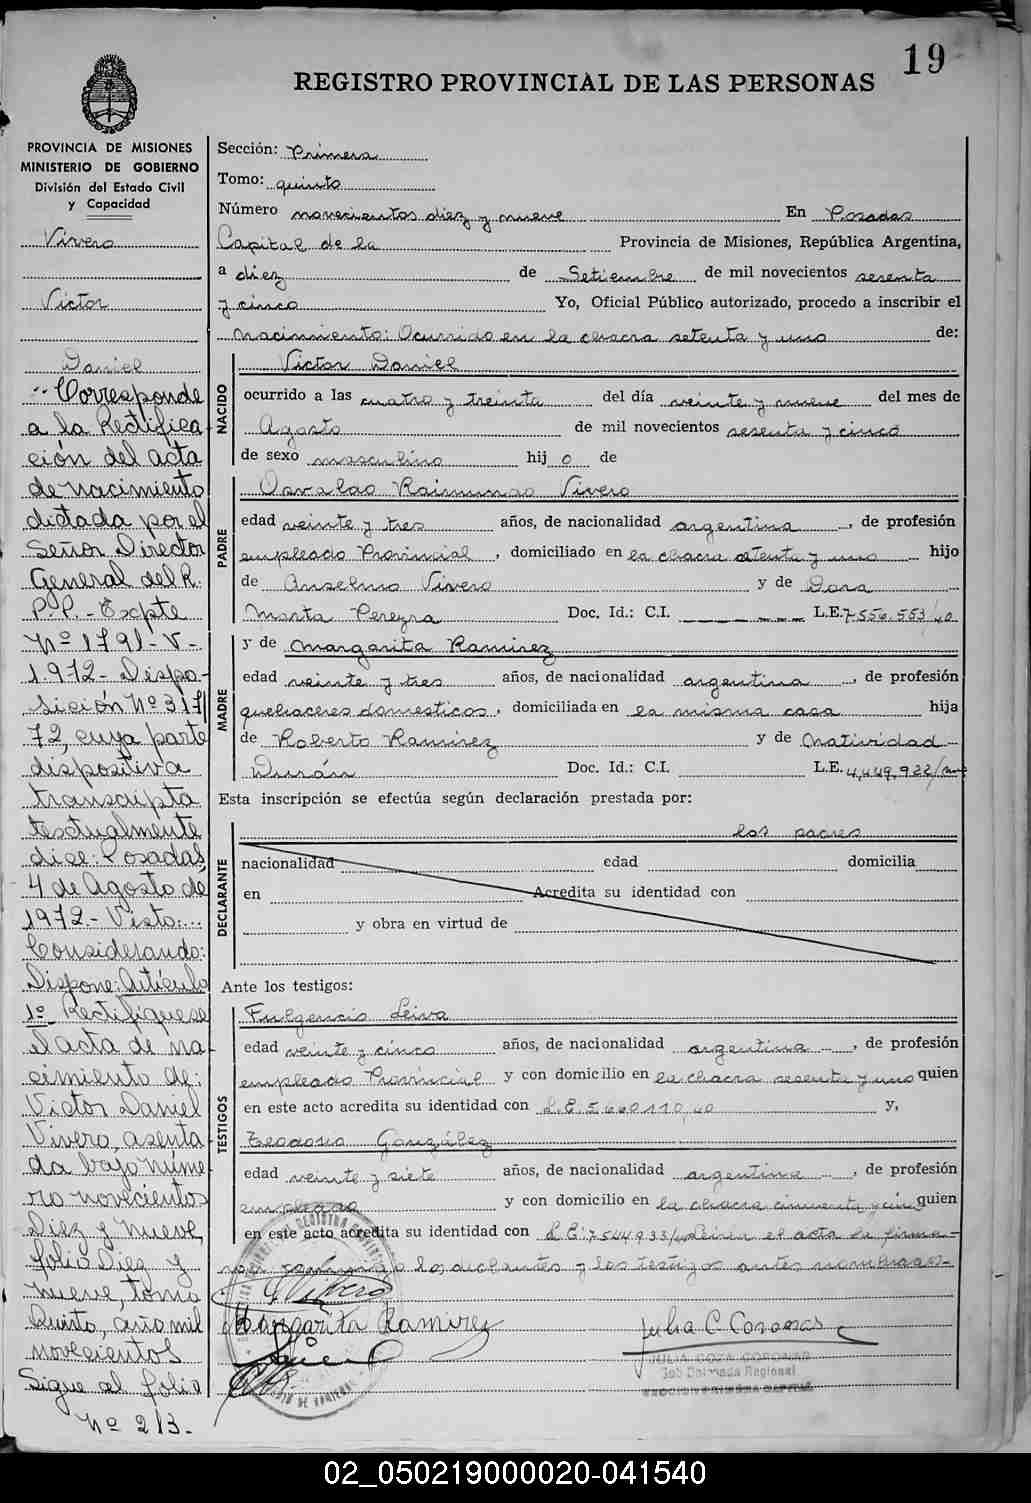 19
REGISTRO PROVINCIAL DE LAS PERSONAS
PROVINCIA DE MISIONES
MINISTERIO DE GOBIERNO
División del Estado Civil
y Capacidad
Vivero
Victor
Daniel
Corresponde
a la Rectifica
ción del acta
de nacimiento
dictada por el
Señor Director
General del R.
P.P.- Expte
Nº 1791-V-
1.972- Dispo-
sición Nº 317/
72, cuya parte
dispositiva
transcripta
textualmente
dice: Posadas,
4 de Agosto de
1972.- Visto:...
Considerando:
Dispone: Artículo
1º Rectifíquese
el acta de na
cimiento de:
Victor Daniel
Vivero, asenta
da bajo núme
ro novecientos
Diez y nueve,
folio Diez y
nueve, tomo
Quinto, año mil
novecientos
Sigue al folio
Nº 213.-
Sección: Primera
Tomo: quinto
Número novecientos diez y nueve En Posadas
Capital de la Provincia de Misiones, República Argentina,
a diez de Setiembre de mil novecientos sesenta
y cinco Yo, Oficial Público autorizado, procedo a inscribir el
nacimiento: Ocurrido en la chacra setenta y uno de:
NACIDO
Victor Daniel
ocurrido a las cuatro y treinta del día veinte y nueve del mes de
Agosto de mil novecientos sesenta y cinco
de sexo masculino hij o de
PADRE
Osvaldo Raimundo Vivero
edad veinte y tres años, de nacionalidad argentina, de profesión
empleado Provincial, domiciliado en la chacra setenta y uno hijo
de Anselmo Vivero y de Dora
Marta Pereyra Doc. Id.: C.I. L.E. 7.556.553/40
MADRE
y de Margarita Ramirez
edad veinte y tres años, de nacionalidad argentina, de profesión
quehaceres domesticos, domiciliada en la misma casa hija
de Roberto Ramirez y de Natividad
Durán Doc. Id.: C.I. L.E. 4,449,922/
Esta inscripción se efectúa según declaración prestada por:
DECLARANTE
los padres
nacionalidad edad domicilia
en Acredita su identidad con
y obra en virtud de
Ante los testigos:
TESTIGOS
Fulgencio Leiva
edad veinte y cinco años, de nacionalidad argentina, de profesión
empleado Provincial y con domicilio en la chacra sesenta y uno quien
en este acto acredita su identidad con L.E. 5.660110,40 y,
Teodosio González
edad veinte y siete años, de nacionalidad argentina, de profesión
empleado y con domicilio en la chacra cincuenta y quien
en este acto acredita su identidad con L.E: 7.544.933/ Leida el acta la firma-
los declantes y los testigos antes nombrados-
Vivero
Margarita Ramirez
Julia C. Coronas
JULIA COZA CORONAR
Sub Delegada Regional
SECCION PRIMERA CAPITAL
02_050219000020-041540